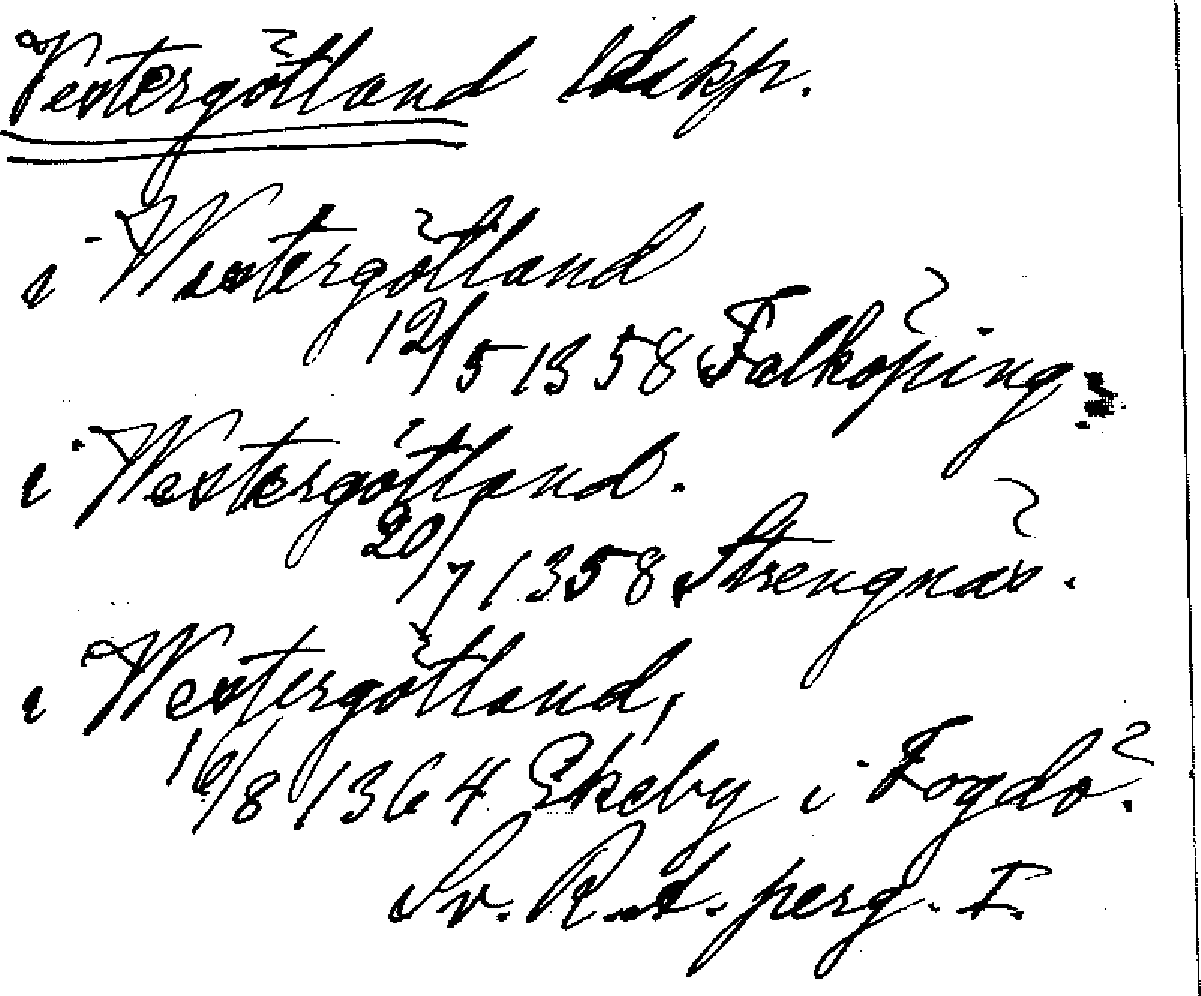 Vestergötland ldskp.
i Westergötland
12/5 1358 Falköping.
i Westergötland.
20/7 1358 Strengnäs.
i Westergötland,
16/8 1364 Ekeby i Fogdö.
Sv. R. A. perg. I.